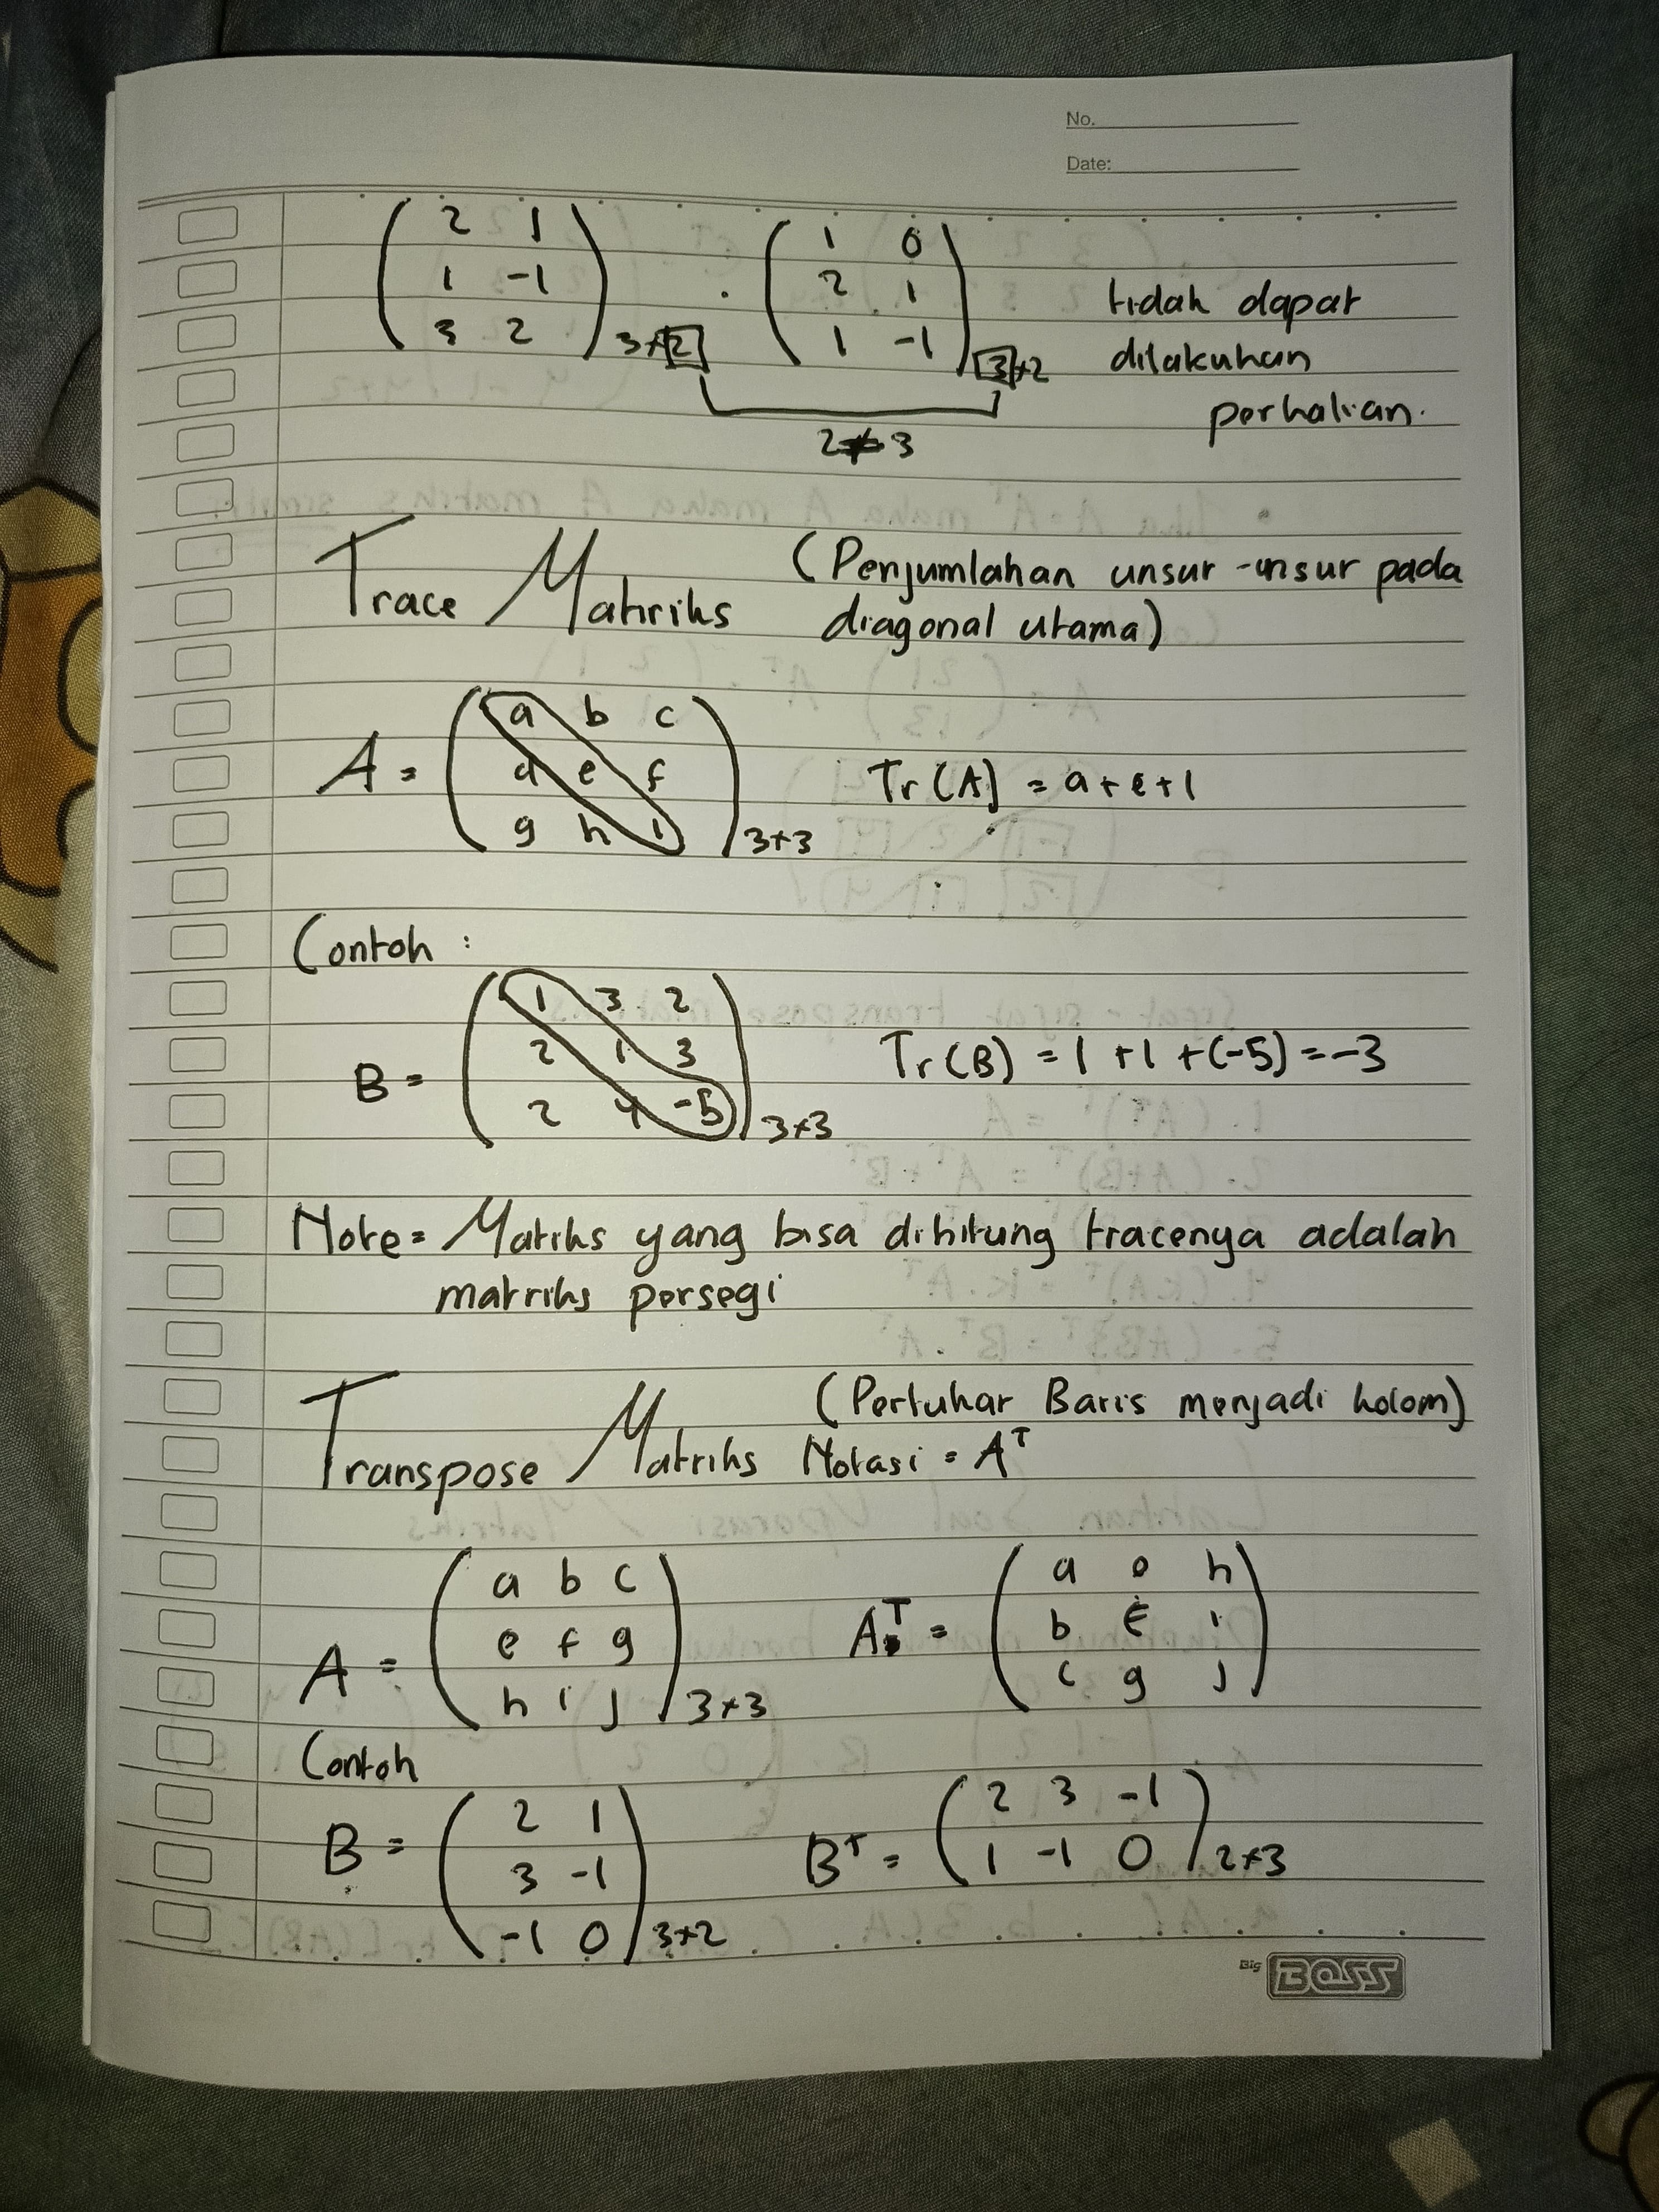 No.
Date:
( 2 1
1 -1
3 2 ) 3×2 . ( 1 0
2 1
1 -1 ) 3×2 tidak dapat
dilakukan
perkalian.
2 ≠ 3
Trace Matriks (Penjumlahan unsur-unsur pada
diagonal utama)
A = ( a b c
d e f
g h i ) 3×3 Tr(A) = a+e+i
Contoh :
B = ( 1 3 2
2 1 3
2 4 -5 ) 3×3 Tr(B) = 1+1+(-5) = -3
Note = Matriks yang bisa dihitung tracenya adalah
matriks persegi
Transpose Matriks (Pertukar Baris menjadi kolom)
Notasi = Aᵀ
A = ( a b c
e f g
h i j ) 3×3 Aᵀ = ( a e h
b f i
c g j )
Contoh
B = ( 2 1
3 -1
-1 0 ) 3×2 Bᵀ = ( 2 3 -1
1 -1 0 ) 2×3
Big BOSS